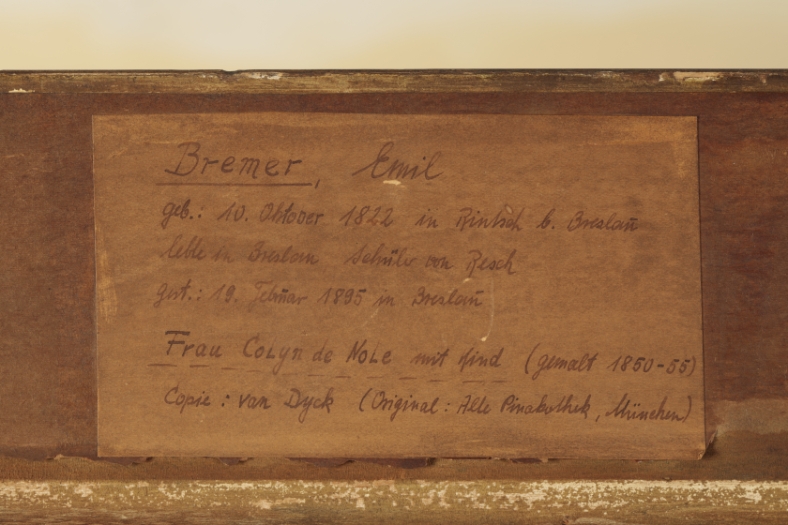 Bremer, Emil
geb.: 10. Oktober 1822 in Rintsch b. Breslau
lebte in Breslau Schüler von Resch
gest.: 19. Februar 1895 in Breslau
Frau Colyn de Nole mit Kind (gemalt 1850-55)
Copie: van Dyck (Original: Alte Pinakothek, München)